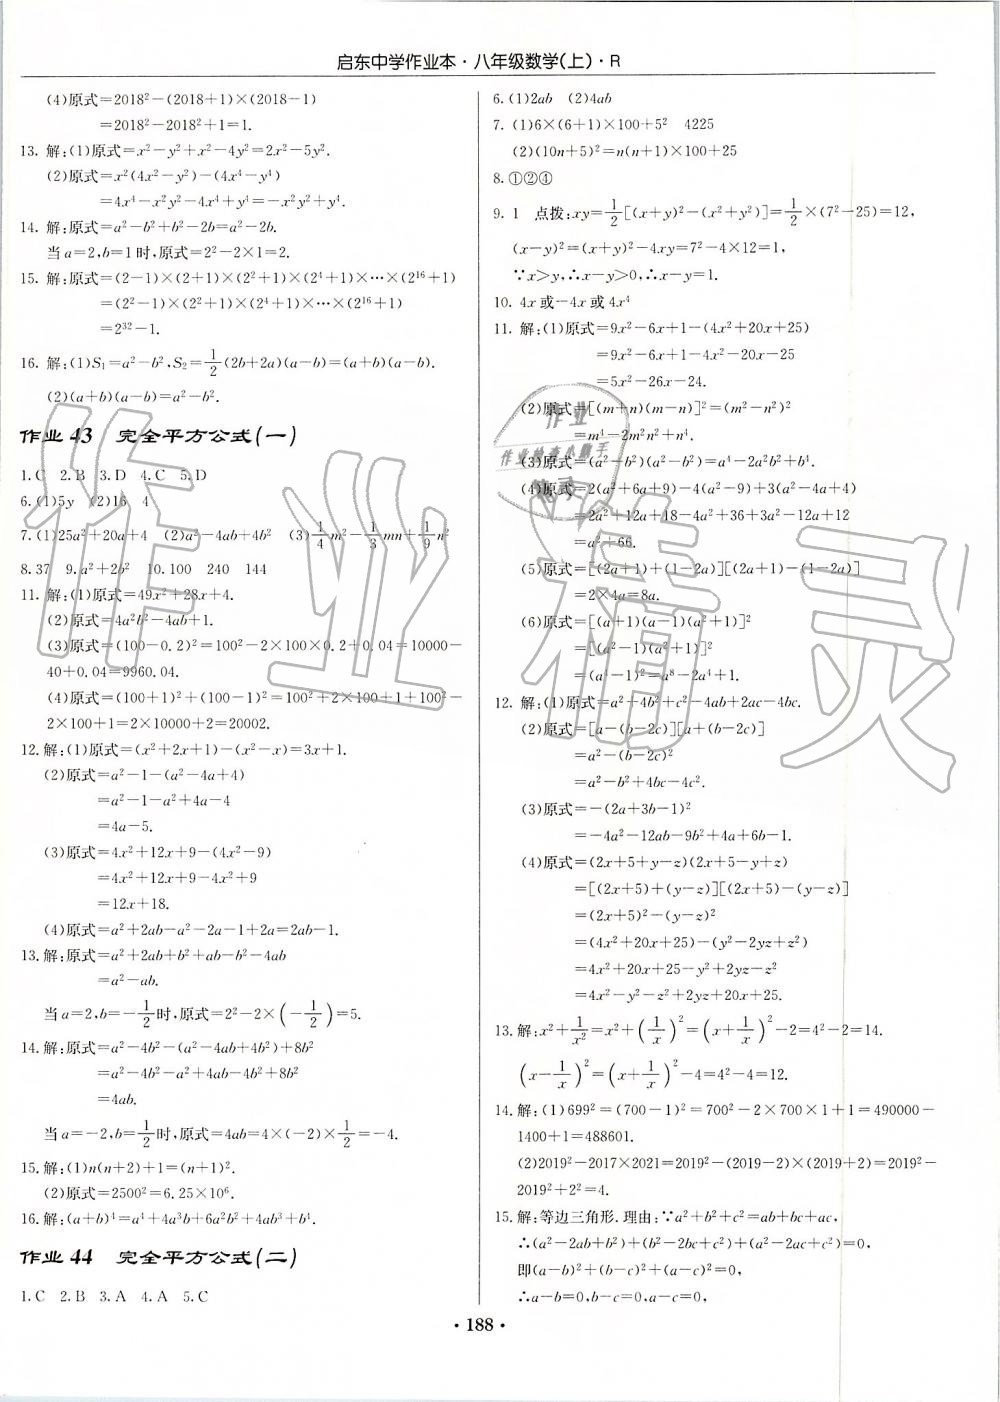 启东中学作业本·八年级数学(上)·R
(4)原式=2018²-(2018+1)×(2018-1)
=2018²-2018²+1=1.
13. 解:(1)原式=x²-y²+x²-4y²=2x²-5y².
(2)原式=x²(4x²-y²)-(4x⁴-y⁴)
=4x⁴-x²y²-4x⁴+y⁴=-x²y²+y⁴.
14. 解:原式=a²-b²+b²-2b=a²-2b.
当a=2,b=1时,原式=2²-2×1=2.
15. 解:原式=(2-1)×(2+1)×(2²+1)×(2⁴+1)×…×(2¹⁶+1)
=(2²-1)×(2²+1)×(2⁴+1)×…×(2¹⁶+1)
=2³²-1.
16. 解:(1)S₁=a²-b²,S₂=1/2(2b+2a)(a-b)=(a+b)(a-b).
(2)(a+b)(a-b)=a²-b².
作业 43 完全平方公式(一)
1.C 2.B 3.D 4.C 5.D
6.(1)5y (2)16 4
7.(1)25a²+20a+4 (2)a²-4ab+4b² (3)1/4m²-1/3mn+1/9n²
8.37 9.a²+2b² 10.100 240 144
11.解:(1)原式=49x²+28x+4.
(2)原式=4a²b²-4ab+1.
(3)原式=(100-0.2)²=100²-2×100×0.2+0.04=10000-
40+0.04=9960.04.
(4)原式=(100+1)²+(100-1)²=100²+2×100+1+100²-
2×100+1=2×10000+2=20002.
12.解:(1)原式=(x²+2x+1)-(x²-x)=3x+1.
(2)原式=a²-1-(a²-4a+4)
=a²-1-a²+4a-4
=4a-5.
(3)原式=4x²+12x+9-(4x²-9)
=4x²+12x+9-4x²+9
=12x+18.
(4)原式=a²+2ab-a²-2a-1+2a=2ab-1.
13.解:原式=a²+2ab+b²+ab-b²-4ab
=a²-ab.
当a=2,b=-1/2时,原式=2²-2×(-1/2)=5.
14.解:原式=a²-4b²-(a²-4ab+4b²)+8b²
=a²-4b²-a²+4ab-4b²+8b²
=4ab.
当a=-2,b=1/2时,原式=4ab=4×(-2)×1/2=-4.
15.解:(1)n(n+2)+1=(n+1)².
(2)原式=2500²=6.25×10⁶.
16.解:(a+b)⁴=a⁴+4a³b+6a²b²+4ab³+b⁴.
作业 44 完全平方公式(二)
1.C 2.B 3.A 4.A 5.C
6.(1)2ab (2)4ab
7.(1)6×(6+1)×100+5² 4225
(2)(10n+5)²=n(n+1)×100+25
8.①②④
9. 1 点拨:xy=1/2[(x+y)²-(x²+y²)]=1/2×(7²-25)=12,
(x-y)²=(x+y)²-4xy=7²-4×12=1,
∵x>y,∴x-y>0,∴x-y=1.
10. 4x或-4x或4x⁴
11. 解:(1)原式=9x²-6x+1-(4x²+20x+25)
=9x²-6x+1-4x²-20x-25
=5x²-26x-24.
(2)原式=[(m+n)(m-n)]²=(m²-n²)²
=m⁴-2m²n²+n⁴.
(3)原式=(a²-b²)(a²-b²)=a⁴-2a²b²+b⁴.
(4)原式=2(a²+6a+9)-4(a²-9)+3(a²-4a+4)
=2a²+12a+18-4a²+36+3a²-12a+12
=a²+66.
(5)原式=[(2a+1)+(1-2a)][(2a+1)-(1-2a)]
=2×4a=8a.
(6)原式=[(a+1)(a-1)(a²+1)]²
=[(a²-1)(a²+1)]²
=(a⁴-1)²=a⁸-2a⁴+1.
12. 解:(1)原式=a²+4b²+c²-4ab+2ac-4bc.
(2)原式=[a-(b-2c)][a+(b-2c)]
=a²-(b-2c)²
=a²-b²+4bc-4c².
(3)原式=-(2a+3b-1)²
=-4a²-12ab-9b²+4a+6b-1.
(4)原式=(2x+5+y-z)(2x+5-y+z)
=[(2x+5)+(y-z)][(2x+5)-(y-z)]
=(2x+5)²-(y-z)²
=(4x²+20x+25)-(y²-2yz+z²)
=4x²+20x+25-y²+2yz-z²
=4x²-y²-z²+2yz+20x+25.
13.解:x²+1/x²=x²+(1/x)²=(x+1/x)²-2=4²-2=14.
(x-1/x)²=(x+1/x)²-4=4²-4=12.
14.解:(1)699²=(700-1)²=700²-2×700×1+1=490000-
1400+1=488601.
(2)2019²-2017×2021=2019²-(2019-2)×(2019+2)=2019²-
2019²+2²=4.
15.解:等边三角形.理由:∵a²+b²+c²=ab+bc+ac,
∴(a²-2ab+b²)+(b²-2bc+c²)+(a²-2ac+c²)=0,
即(a-b)²+(b-c)²+(a-c)²=0,
∴a-b=0,b-c=0,a-c=0,
·188·
作业精灵